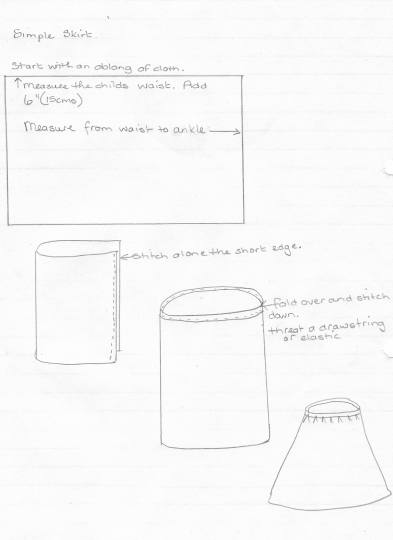 Simple Skirt.
Start with an oblong of cloth.
↑ measure the childs waist. Add
6" (15cms)
Measure from waist to ankle →
stitch alone the short edge.
fold over and stitch
down.
threat a drawstring
of elastic